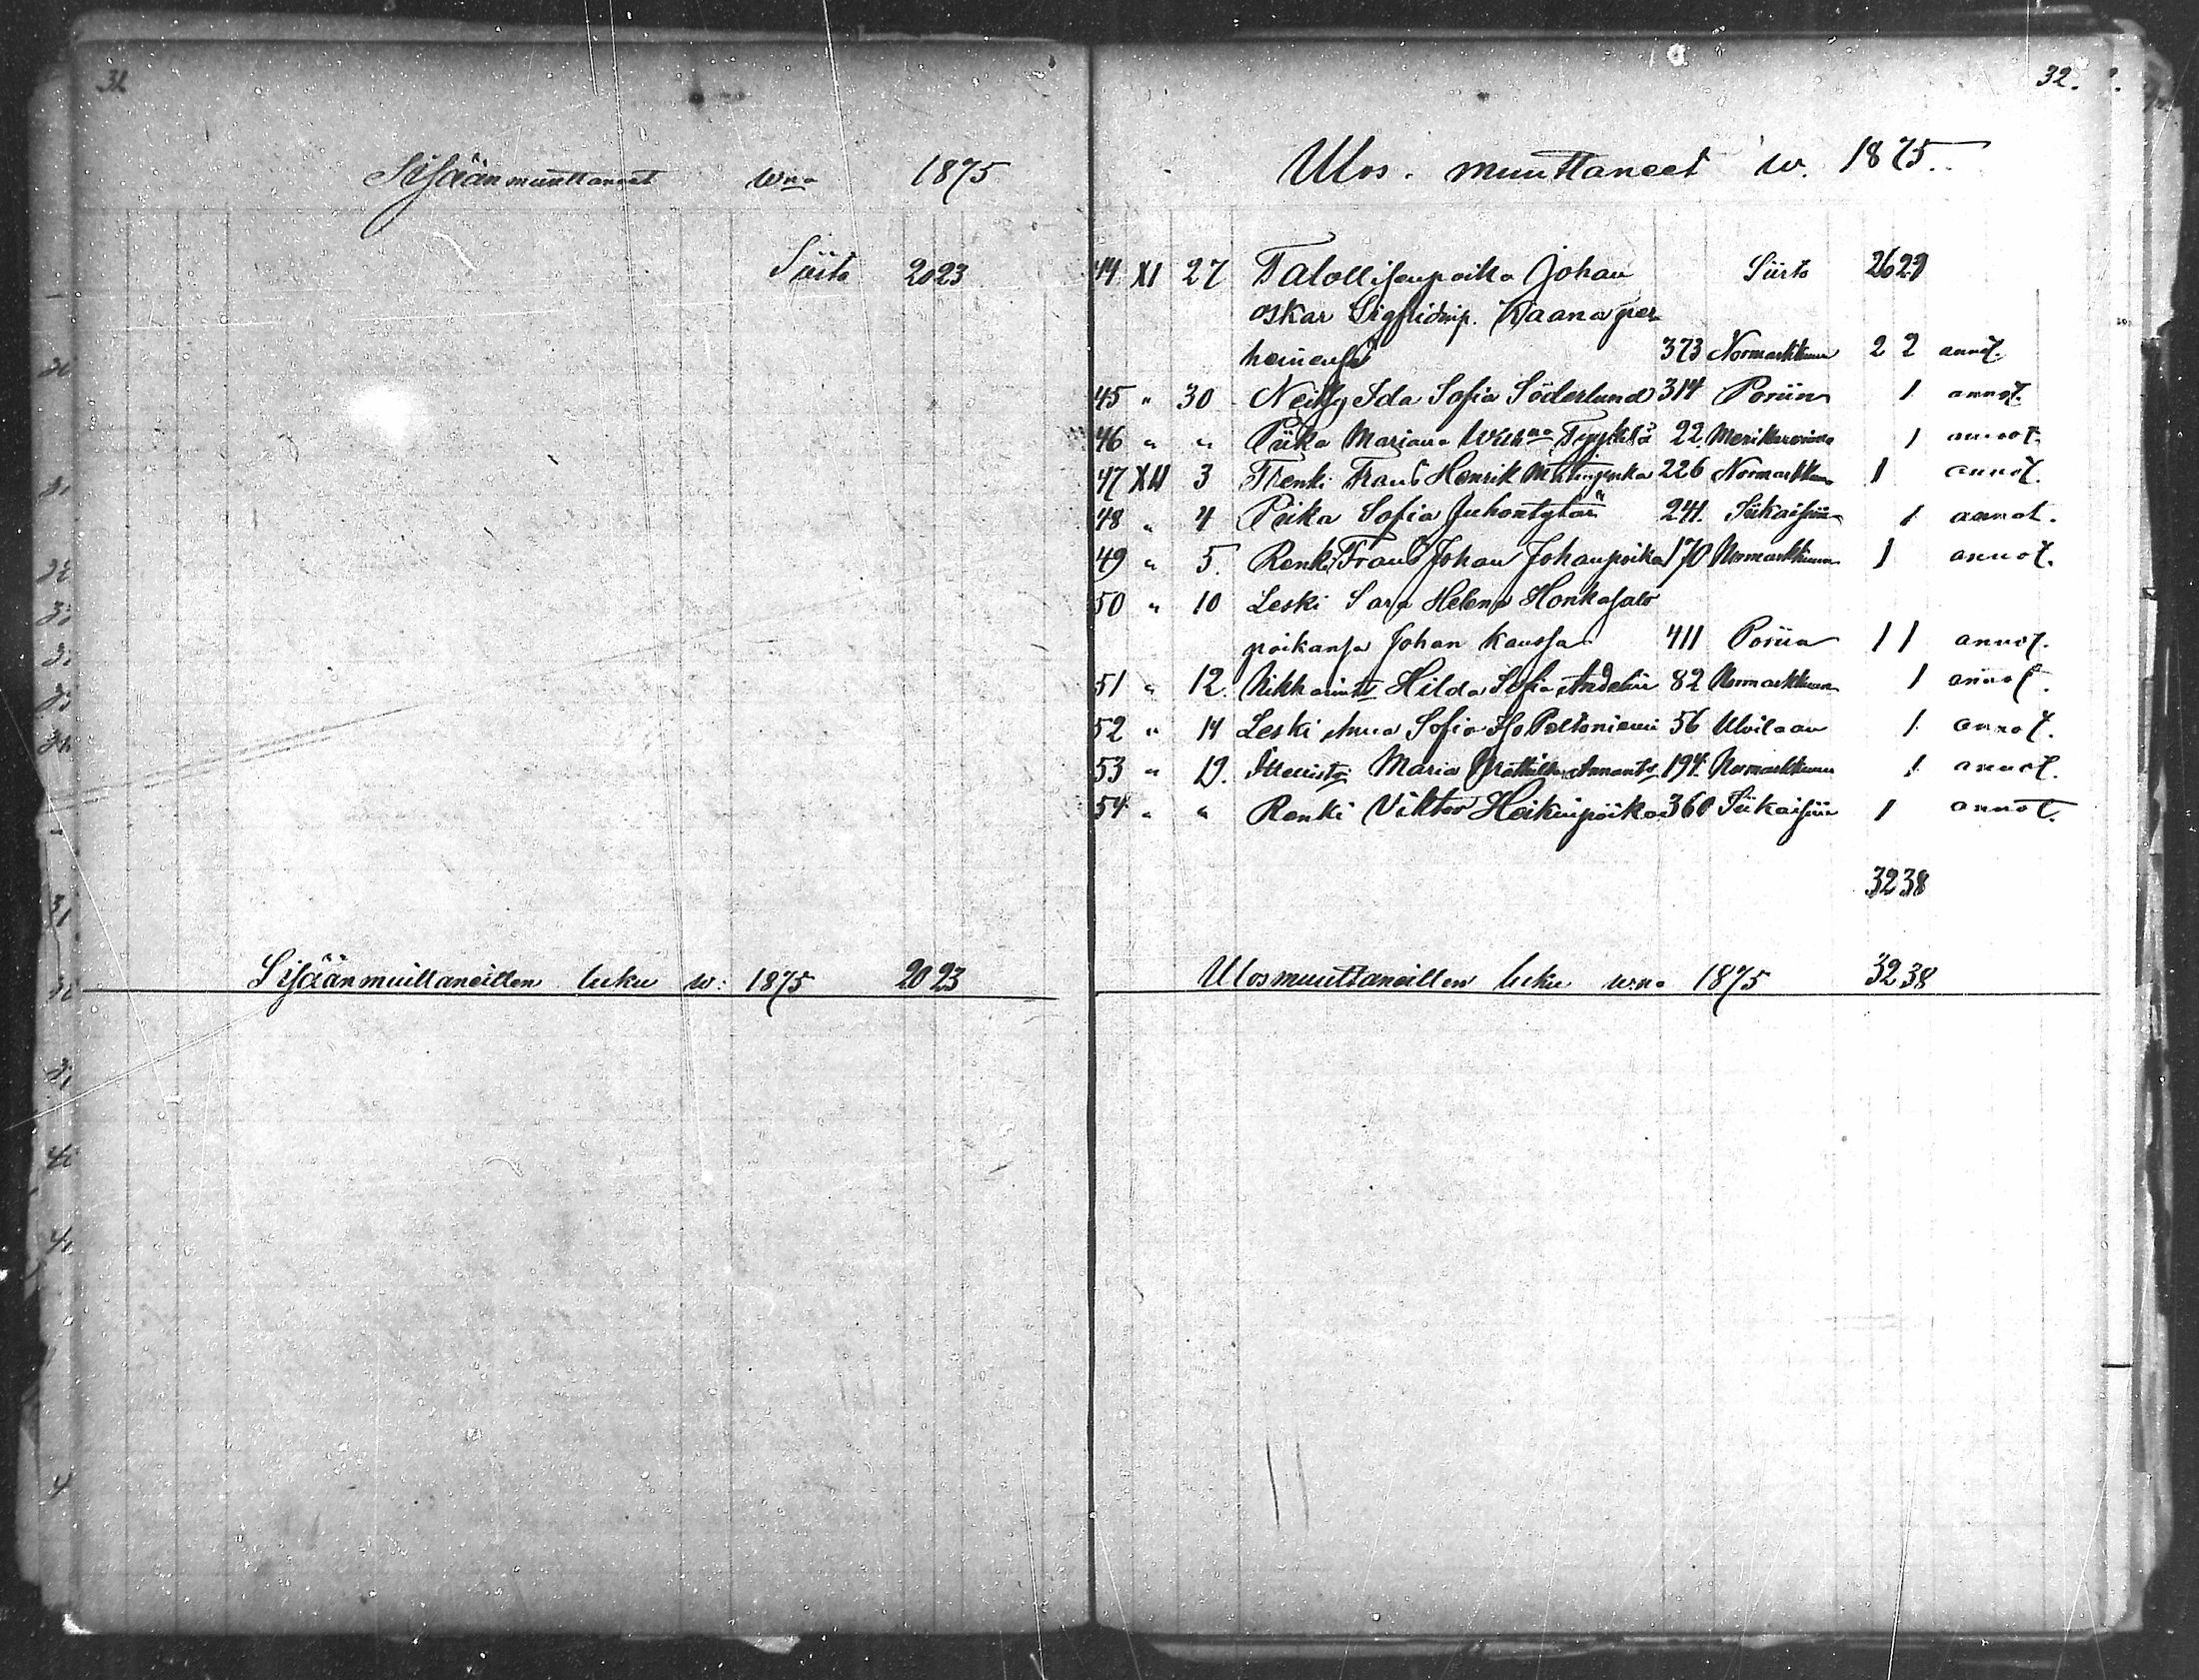 32
Sisäänmuuttaneet wna 1875
Siirto 20 23
Sisäänmuuttaneitten luku w: 1875 20 23
32.
Ulos-muuttaneet w. 1875.
44 XI 27 Talollisenpoika Johan Siirto 26 29
Oskar Sigfridinp. Kaana per
heinensä 373 Normarkkuun 2 2 annot.
45 " 30 Neitsy Ida Sofia Söderlund 314 Poriin 1 annot.
46 " " Piika Mariana 22 Merikarvialle 1 annot.
47 XII 3 Renki Frans Henrik Matinpoika 226 Normarkkuun 1 annot.
48 " 4 Piika Sofia Juhontytär 241. Siikaisiin 1 annot.
49 " 5. Renki Frans Johan Johanpoika 170 Normarkkuun 1 annot.
50 " 10 Leski Sara Helena Honkasalo
poikansa Johan kanssa 411 Poriin 1 1 annot.
51 " 12. Hilda Sofia Andelin 82 Normarkkuun 1 annot.
52 " 14 Leski Anna Sofia Peltoniemi 56 Ulvilaan 1 annot.
53 " 19. Maria 194. Normarkkuun 1 annot.
54 " " Renki Viktor Heikinpoika 360 Siikaisiin 1 annot.
32 38
Ulosmuuttaneitten luku wna 1875 32 38